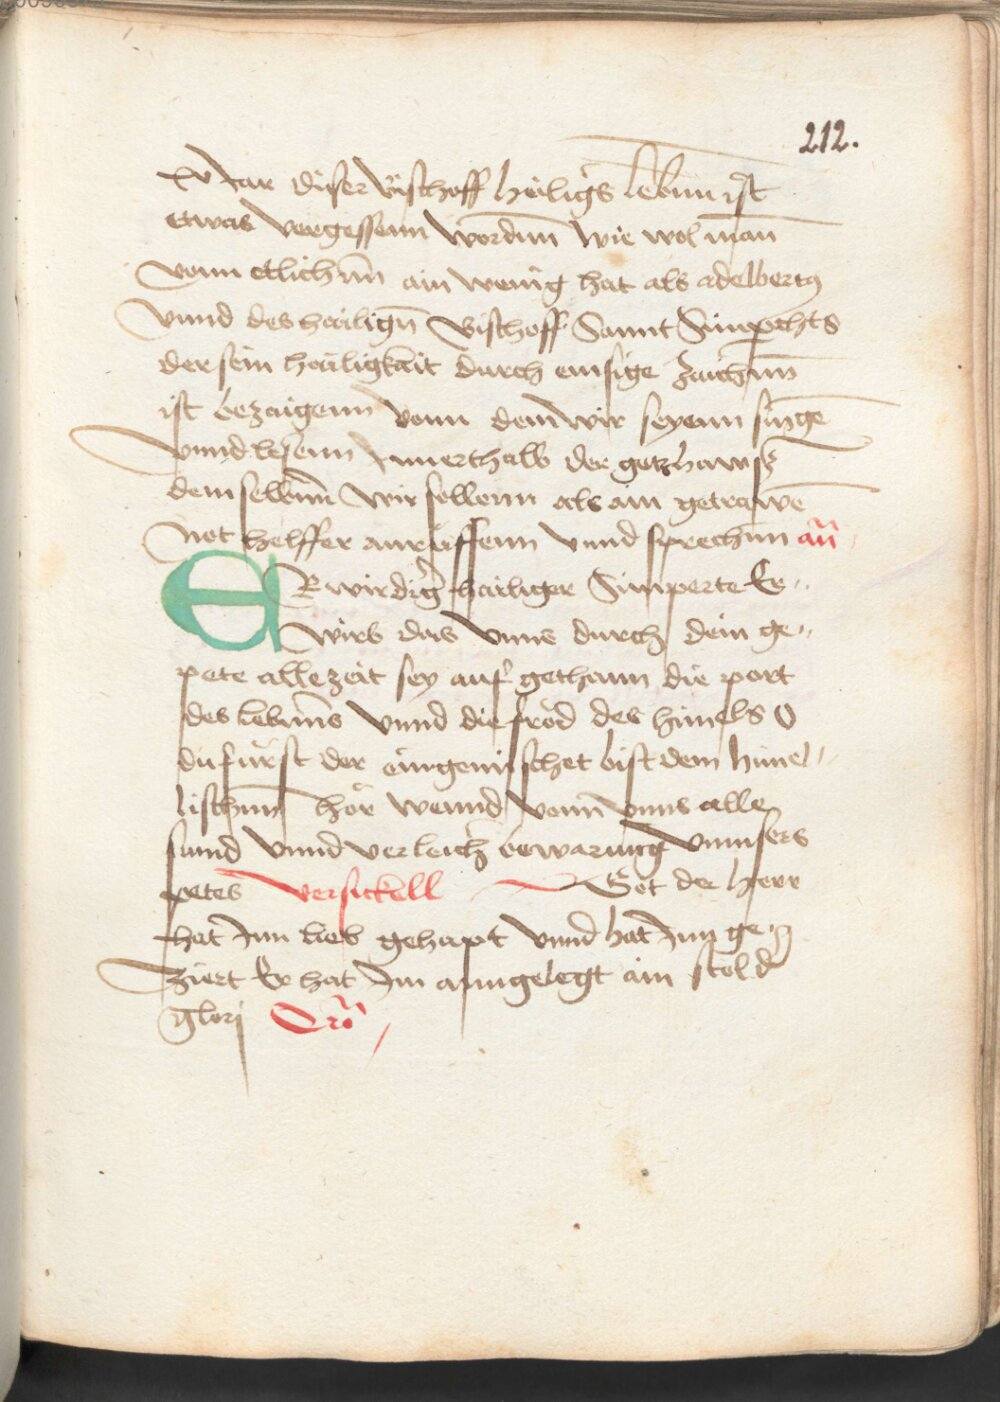 212.
War diser Bischoff heiligs lebnn ist
etwas vergessenn wordnn wie wol man
vonn etlichnn ain wenig hat als adelbertus
Vnnd des hailign Bischoff Sannt Simpechts
der sein hailigkait durch emsige zaichnn
ist bezaigenn vonn dem wir seyenn singe
vnnd lesenn Innerthalb der gotzhawss
dem selbnn wir sollenn als ain getrawe
Not helffer anrüffenn vnnd sprechnn an
ERwirdiger hailiger Simperte Er
wirb das vnns durch dein ge
pete allezeit sey auf gethann die port
des lebnns vnnd die fröd des himels O
du fürst der eingemischet bist dem himel
lischnn hör wennd vonn vnns alle
sünnd vnnd verleich bewarung vnnsers
petes versickell Got der herr
hat Inn lieb gehapt vnnd hat Inn ge
ziert Er hat Im anngelegt ain stol d
glori Oro